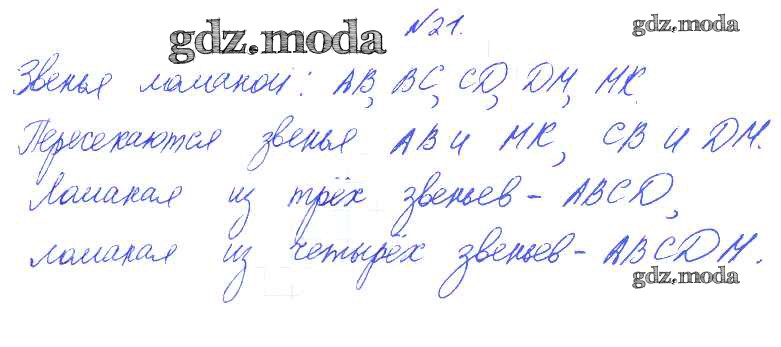 №21.
gdz.moda
gdz.moda
Звенья ломаной: AB, BC, CD, DM, MK.
Пересекаются звенья AB и MK, CB и DM.
Ломаная из трёх звеньев - ABCD,
ломаная из четырёх звеньев - ABCDM.
gdz.moda